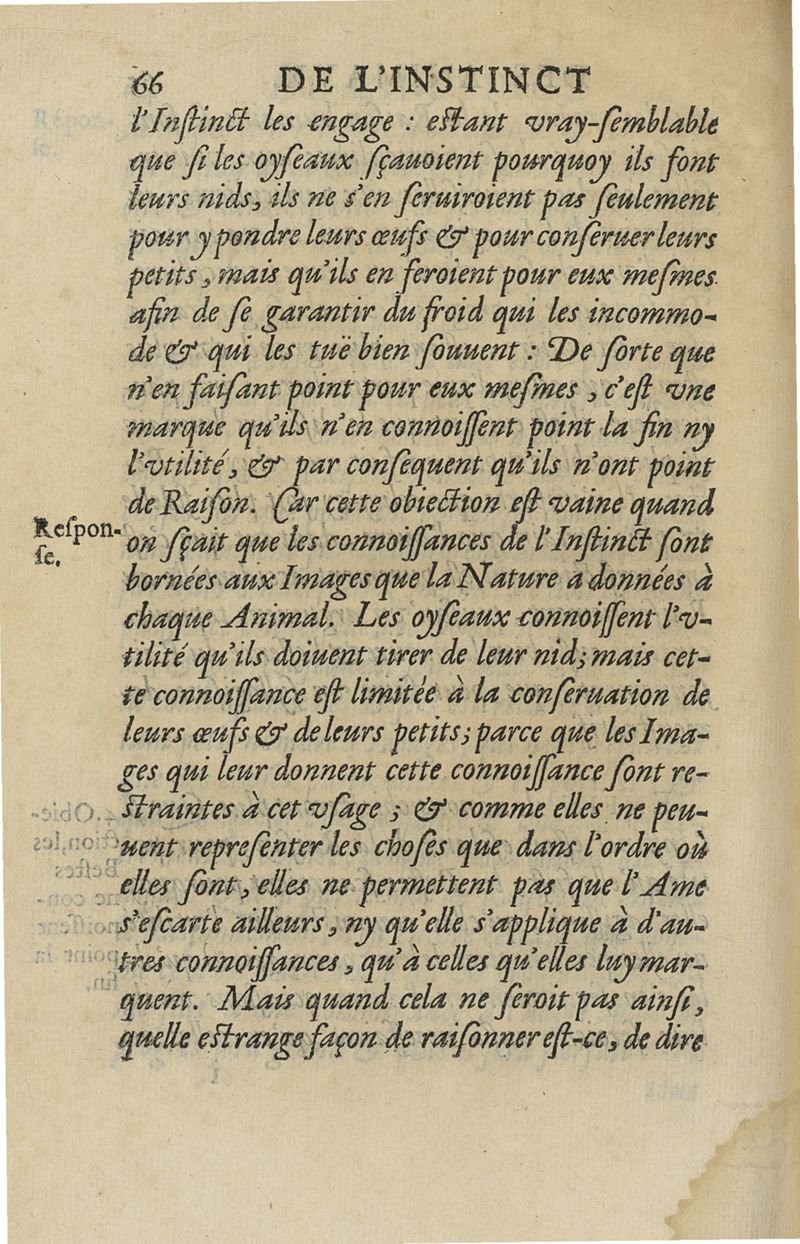 66 DE L'INSTINCT
l'Instinct les engage : estant vray-ſemblable
que ſi les oyſeaux ſçauoient pourquoy ils ſont
leurs nids, ils ne s'en ſeruiroient pas ſeulement
pour y pondre leurs œufs & pour conſeruer leurs
petits, mais qu'ils en feroient pour eux meſmes
afin de ſe garantir du froid qui les incommo-
de & qui les tuë bien ſouuent : De ſorte que
n'en faiſant point pour eux meſmes, c'eſt vne
marque qu'ils n'en connoiſſent point la fin ny
l'vtilité, & par conſequent qu'ils n'ont point
de Raiſon. Car cette obiection eſt vaine quand
Reſpon-
ſe.
on ſçait que les connoiſſances de l'Inſtinct ſont
bornées aux Images que la Nature a données à
chaque Animal. Les oyſeaux connoiſſent l'v-
tilité qu'ils doiuent tirer de leur nid; mais cet-
te connoiſſance eſt limitée à la conſeruation de
leurs œufs & de leurs petits; parce que les Ima-
ges qui leur donnent cette connoiſſance ſont re-
ſtraintes à cet vſage ; & comme elles ne peu-
uent repreſenter les choſes que dans l'ordre où
elles ſont, elles ne permettent pas que l'Ame
s'eſcarte ailleurs, ny qu'elle s'applique à d'au-
tres connoiſſances, qu'à celles qu'elles luy mar-
quent. Mais quand cela ne ſeroit pas ainſi,
quelle eſtrange façon de raiſonner eſt-ce, de dire